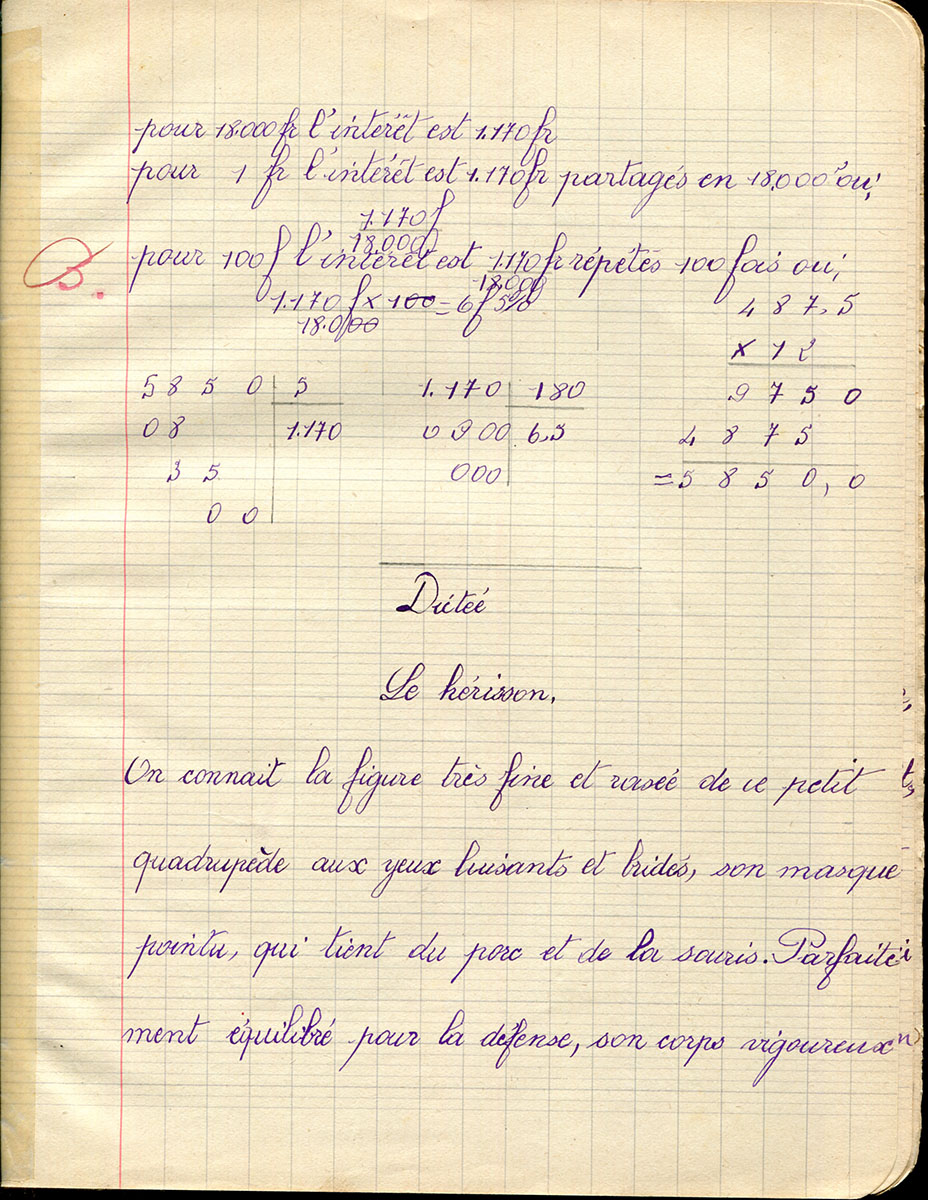 pour 18.000 fr l'intérêt est 1.170 fr
pour 1 fr l'intérêt est 1.170 fr partagés en 18.000 ou;
1.170 f
18.000
B.
pour 100 f l'intérêt est 1.170 fr répétés 100 fois ou;
18.000
1.170 f x 100 = 6 f 5%
18.000
4 8 7,5
x 1 2
5 8 5 0 | 5
1.170 | 180
9 7 5 0
0 8 | 1.170
0 900 | 6,5
4 8 7 5
3 5
000
= 5 8 5 0, 0
0 0
Dictée
Le hérisson.
On connait la figure très fine et rasée de ce petit
quadrupède aux yeux luisants et bridés, son masque
pointu, qui tient du porc et de la souris. Parfaite
ment équilibré pour la défense, son corps vigoureux